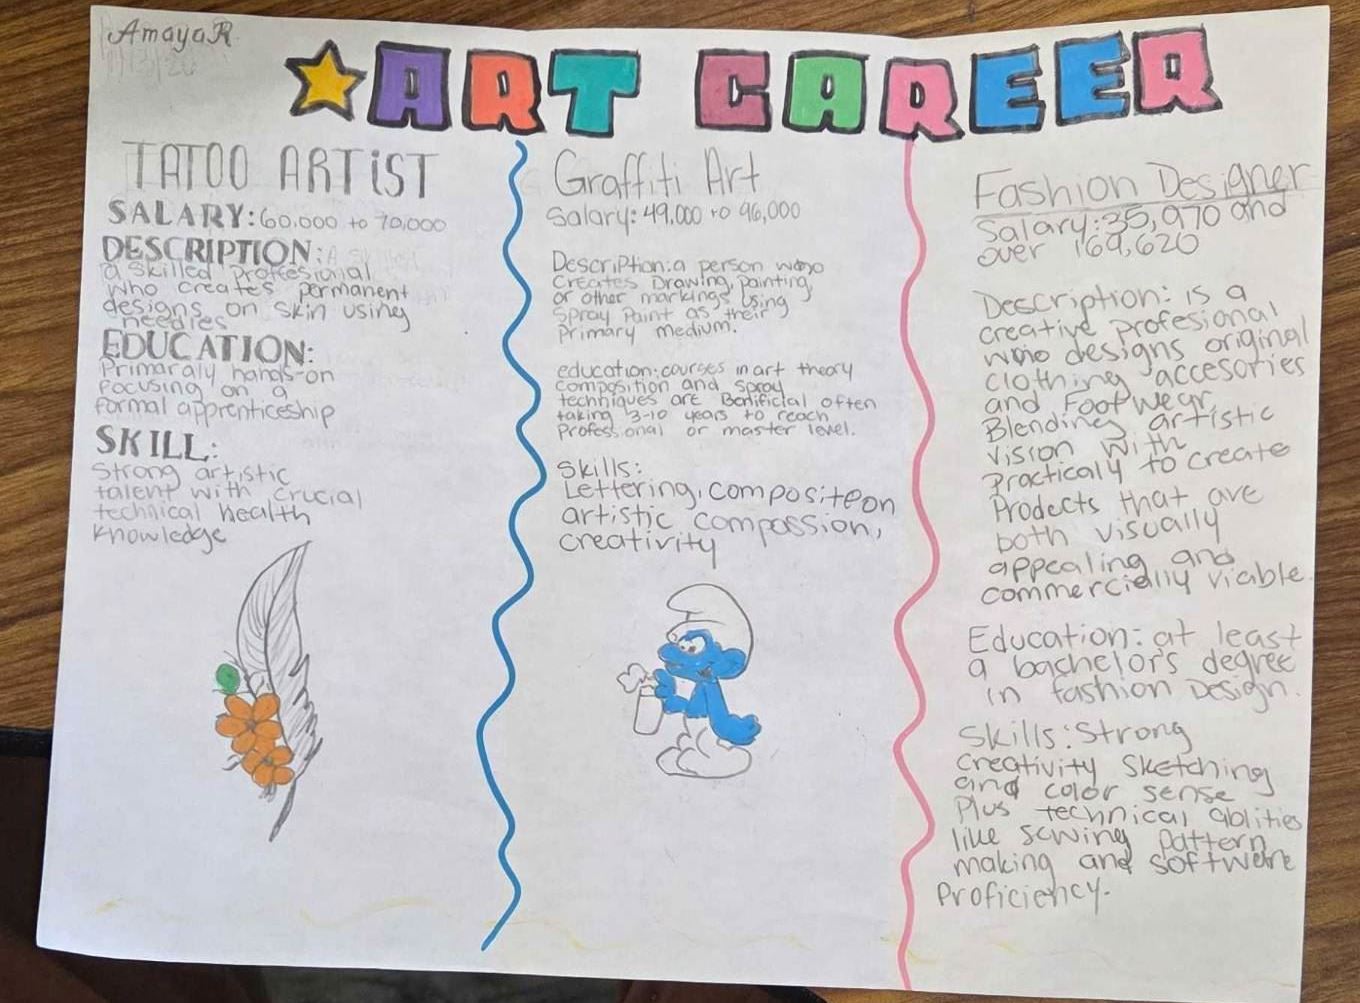 AmayaR.
ART CAREER
TATOO ARTiST
SALARY: 60,000 to 70,000
DESCRIPTION:
a skilled proffesional
who creates permanent
designs on skin using
needles
EDUCATION:
Primaraly hands-on
focusing on a
formal apprenticeship
SKILL:
Strong artistic
talent with crucial
technical health
knowledge
Graffiti Art
Salary: 49,000 to 96,000
Description: a person who
creates Drawing, painting,
or other markings using
Spray Paint as their
Primary medium.
education: courses in art theory
composition and spray
techniques are Benificial often
taking 3-10 years to reach
Professional or master level.
Skills:
Lettering, compositeon
artistic compassion,
creativity
Fashion Designer
Salary: 35,970 and
over 169,620
Description: is a
creative profesional
who designs original
clothing accesories
and Footwear
Blending artistic
vision with
practicaly to create
Products that are
both visually
appealing and
commercially viable.
Education: at least
a bachelors degree
in fashion Design.
Skills: Strong
creativity sketching
and color sense
Plus technical ablities
like sewing pattern
making and software
Proficiency.